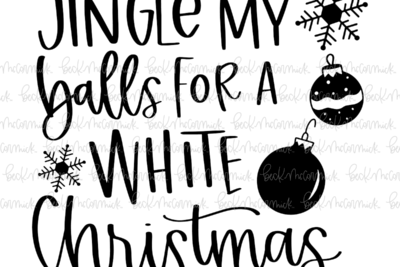 JINGLE MY
balls FOR A
WHITE
Christmas